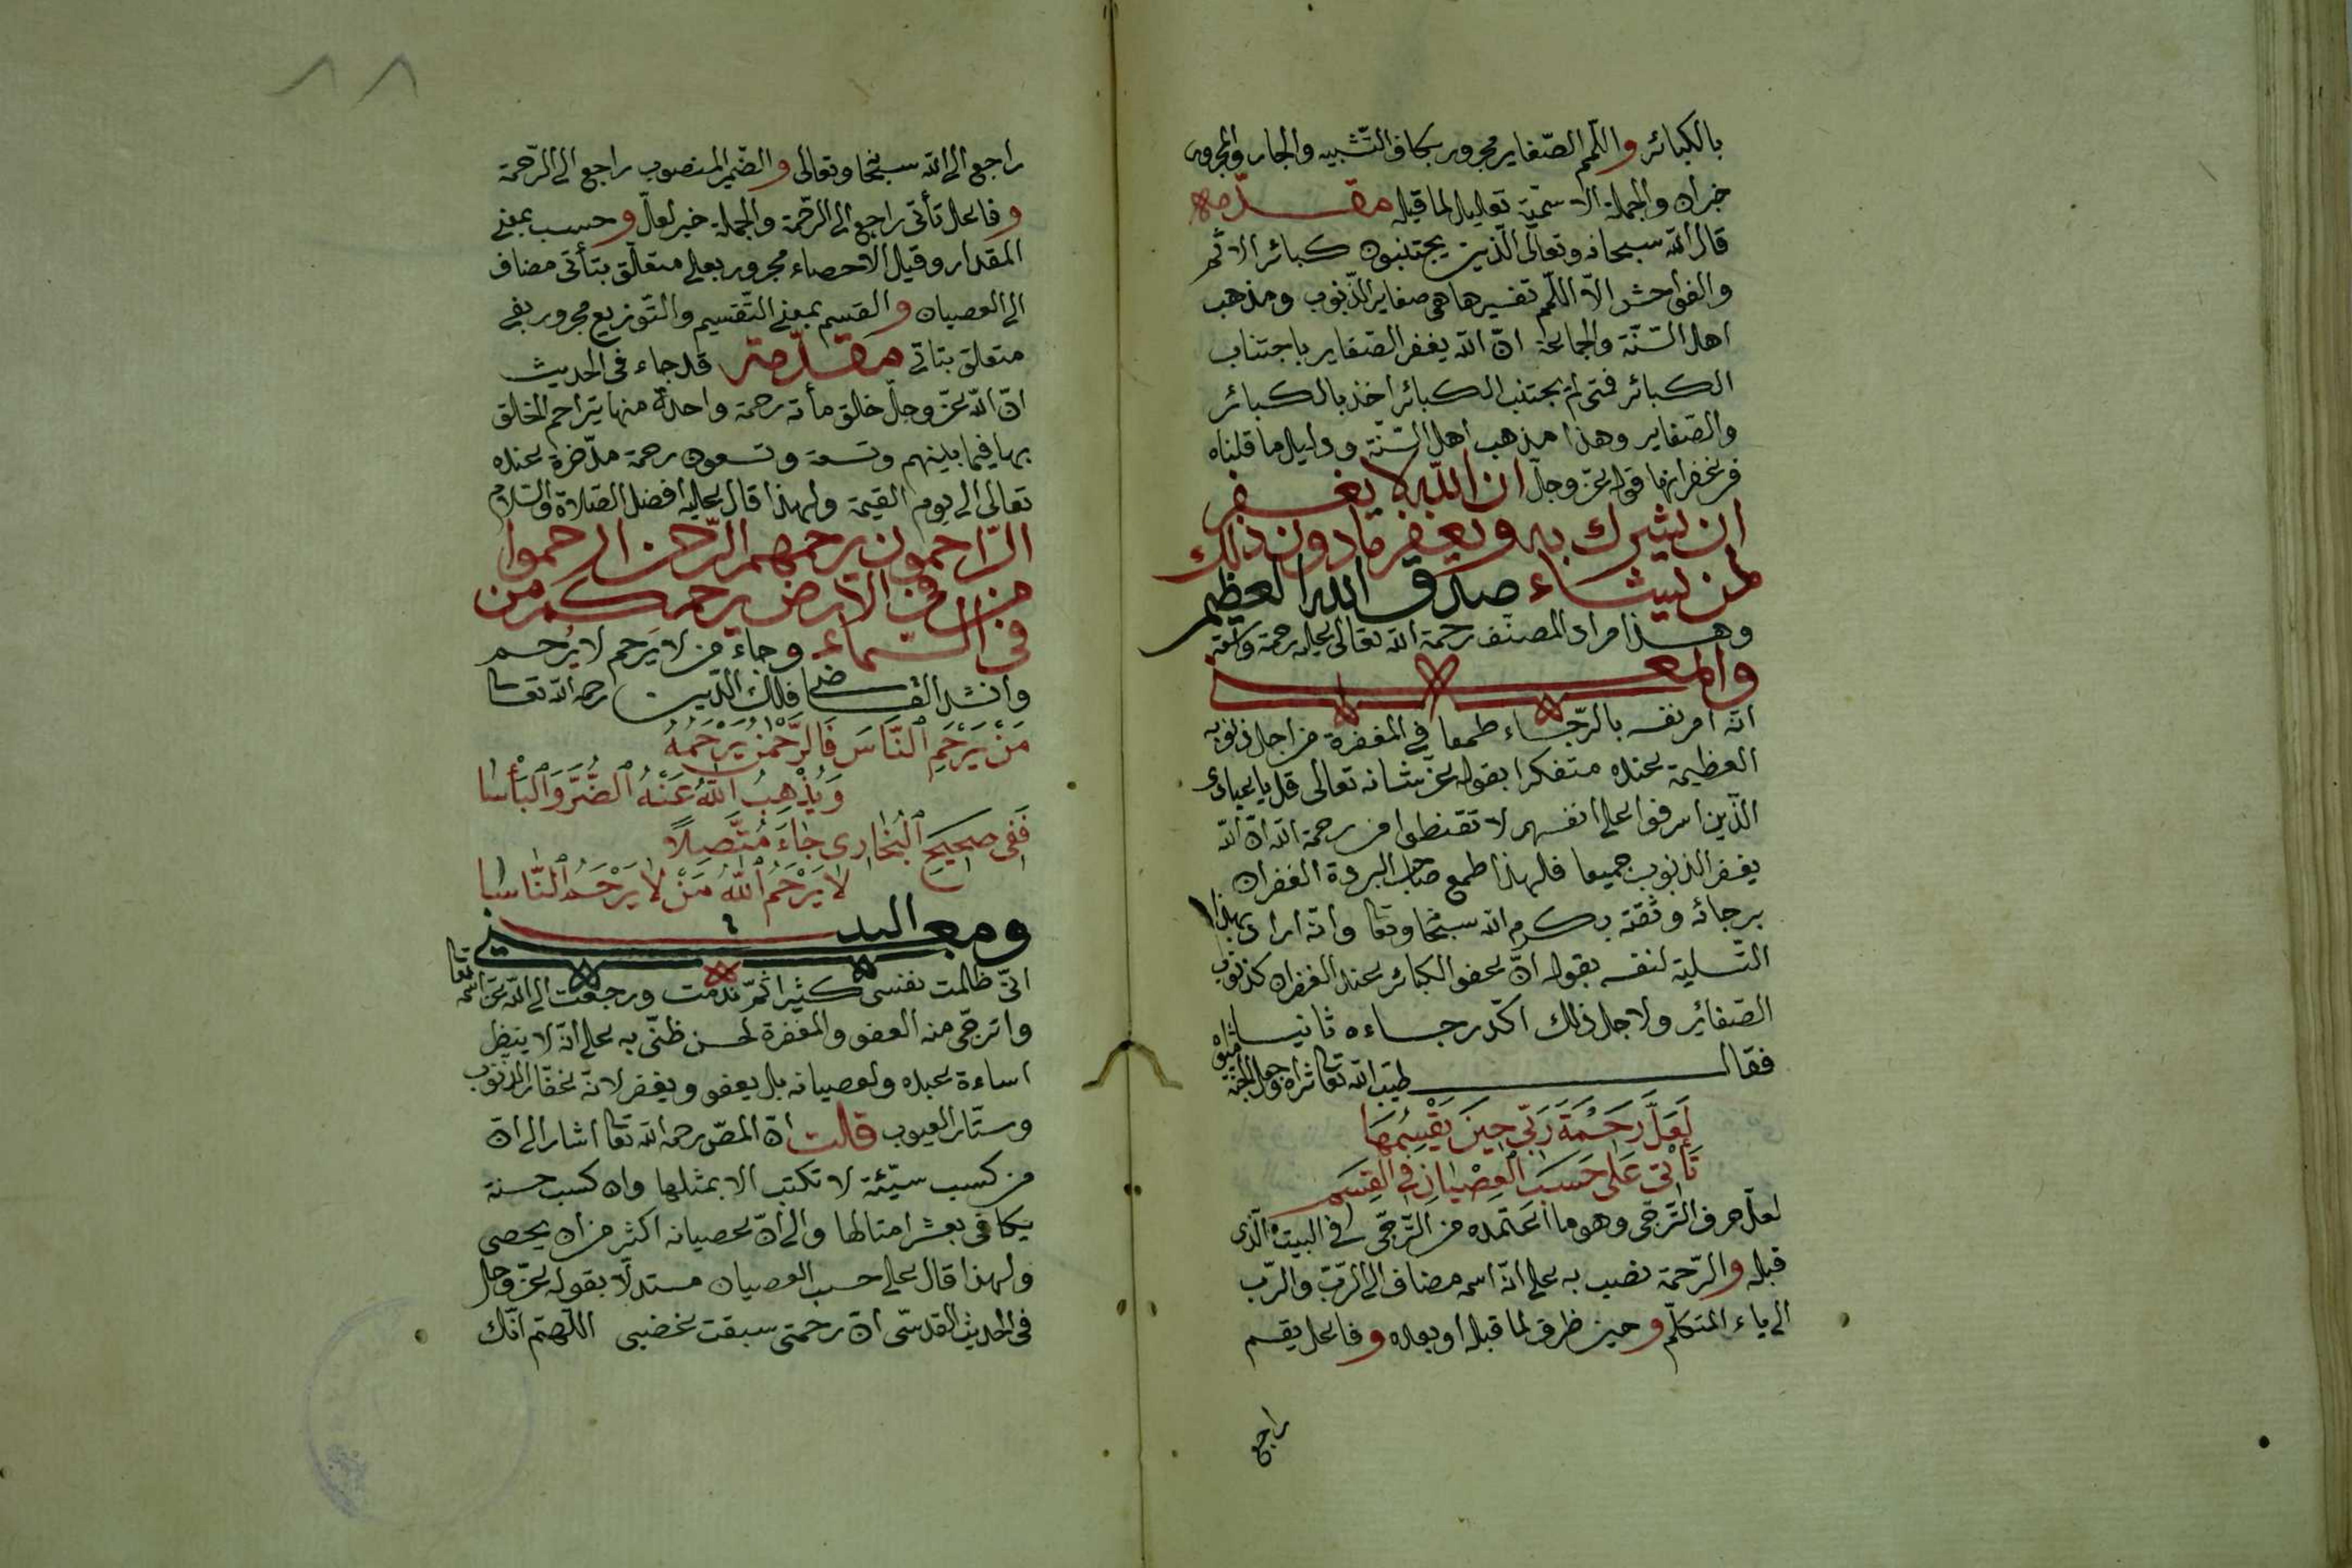 بالكبائر واللمم الصّغاير مجرور بكاف التّشبيه والجار والمجرور
خبران والجملة الاسميّة تعليل لما قبله مقدّمة
قال الله سبحانه وتعالى الّذين يجتنبون كبائر الاثم
والفواحش الّا اللّمم تفسيرها هى صغاير الذّنوب ومذهب
اهل السّنّة والجماعة انّ الله يغفر الصّغاير باجتناب
الكبائر فمتى لم يجتنب الكبائر اخذ بالكبائر
والصّغاير وهذا مذهب اهل السّنّة ودليل ما قلناه
من غفرانها قوله عزّ وجلّ ان الله لا يغفر
ان يشرك به ويغفر ما دون ذلك
لمن يشاء صدق الله العظيم
وهذا مراد المصنّف رحمة الله تعالى عليه رحمة واسعة
والمعنى
انّه امر نفسه بالرّجاء طمعا في المغفرة من اجل ذنوبه
العظيمة عنده متفكرا بقوله عزّ شانه تعالى قل يا عبادى
الّذين اسرفوا على انفسهم لا تقنطوا من رحمة الله انّ الله
يغفر الذنوب جميعا فلهذا طمع صاحب البردة الغفران
برجائه وثقته بكرم الله سبحا وتعا وانّه اراد بهذا
التّسلية لنفسه بقوله انّ عفو الكبائر عند الغفران كذنوب
الصّغائر ولاجل ذلك اكّد رجاءه ثانيا
فقال طيّب الله تعا ثراه وجعل الجنّة مثواه
لَعَلَّ رَحْمَةَ رَبّى حِينَ يَقْسِمُهَا
تَأْتى عَلى حَسَبِ الْعِصْيَانِ فِى الْقِسَمِ
لعلّ حرف التّرجّى وهو ما اعتمده من التّرجّى فى البيت الّذى
قبله والرّحمة نصب به على انّه اسمه مضاف الى الرّبّ والرّبّ
الى ياء المتكلّم وحين ظرف لما قبله او بعده وفاعل يقسم
راجع
٨٨
راجع الى الله سبحا وتعالى والضّمير المنصوب راجع الى الرّحمة
وفاعل تأتى راجع الى الرّحمة والجملة خبر لعلّ وحسب بمعنى
المقدار وقيل الاحصاء مجرور بعلى متعلّق بتأتى مضاف
الى العصيان والقسم بمعنى التّقسيم والتّوزيع مجرور بفى
متعلق بتاتى مقدّمة قد جاء فى الحديث
انّ الله عزّ وجلّ خلق مأة رحمة واحدة منها يتراحم الخلق
بها فيما بينهم وتسعة وتسعون رحمة مدّخرة عنده
تعالى الى يوم القيمة ولهذا قال عليه افضل الصّلاة والسّلام
الرّاحمون يرحمهم الرّحمن ارحموا
من فى الارض يرحمكم من
فى السّماء وجاء من لا يَرحم لا يُرحم
وانشد القاضى فلك الدّين رحمه الله تعا
مَنْ يَرْحَمِ النَّاسَ فَالرَّحْمٰنُ يَرْحَمُهُ
وَيُذْهِبُ اللهُ عَنْهُ الضُّرَّ وَالْبَأْسَا
فَفِى صَحِيحِ الْبُخَارِى جَاءَ مُتَّصِلًا
لَا يَرْحَمُ اللهُ مَنْ لَا يَرْحَمُ النَّاسَا
ومعنى البيت
انّى ظلمت نفسى كثيرا ثمّ ندمت ورجعت الى الله عزّ اسمه تعا
واترجّى منه العفو والمغفرة لحسن ظنّى به على انّه لا ينظر
اساءة عبده ولعصيانه بل يعفو ويغفر لانّه غفّار الذّنوب
وستّار العيوب قلت انّ المصّ رحمه الله تعا اشار الى انّ
من كسب سيّئة لا تكتب الا بمثلها وان كسب حسنة
يكافى بعشر امثالها والى انّ عصيانه اكثر من ان يحصى
ولهذا قال على حسب العصيان مستدلّا بقوله عزّ وجل
فى الحديث القدسّى انّ رحمتى سبقت غضبى اللّهمّ انّك